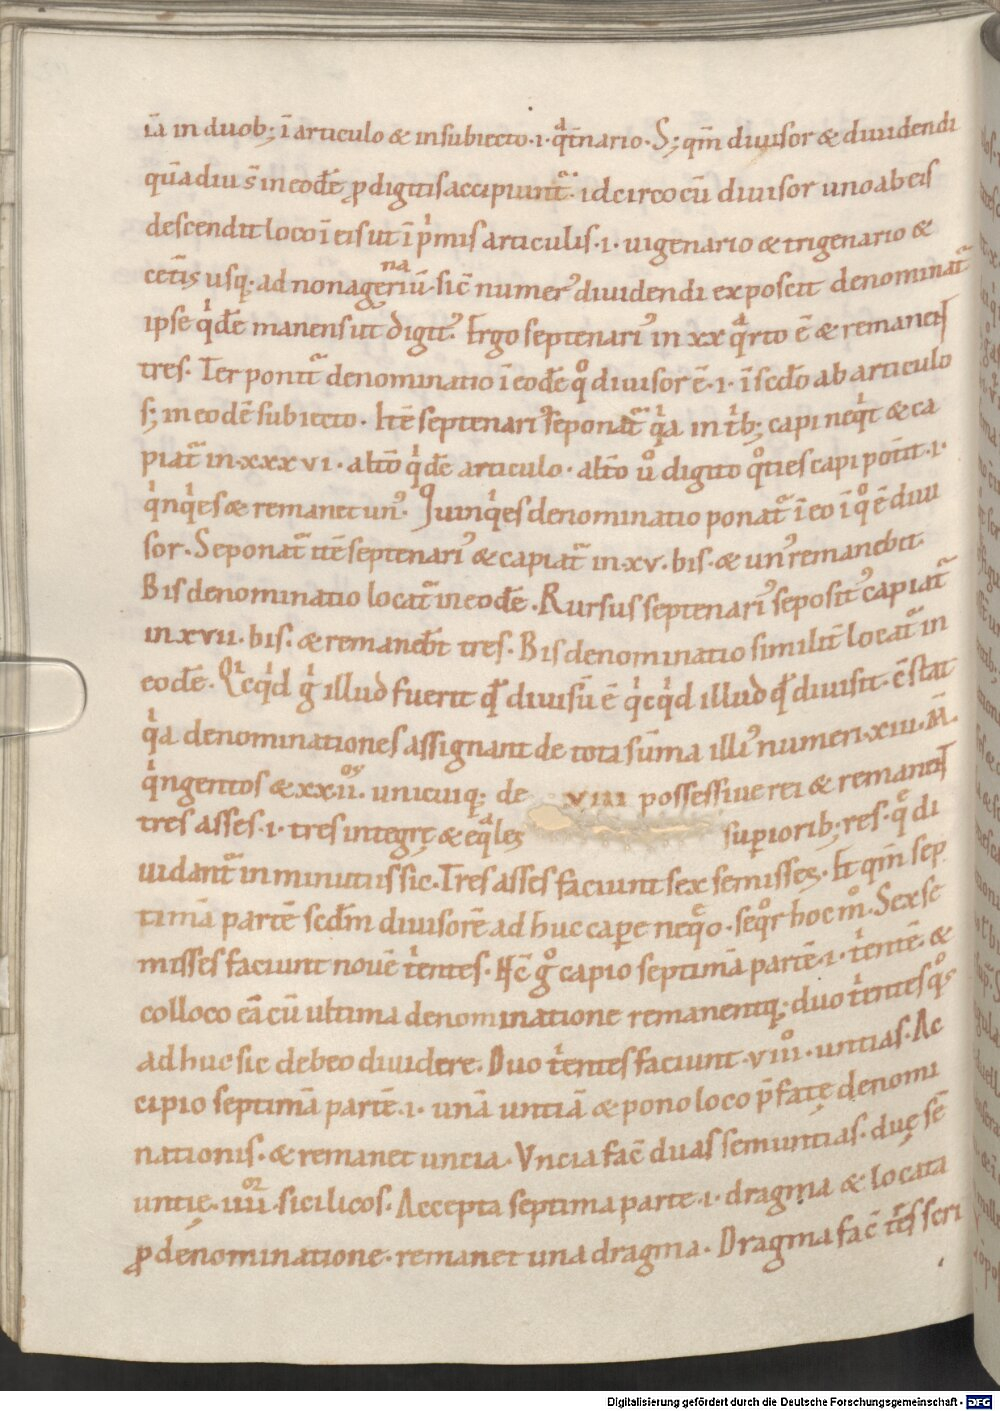 īa in duob; ī articulo & in subiecto · i · q̄ͣt̄nario · S; qm̄ diuisor & diuidendi
qūa diu s̄ in eodē ꝓ digitis accipiunt᷑ · idcirco cū diuisor uno ab eis
descendit loco ī eis ut ī pͥmis articulis · i · uigenario & trigenario &
cet̄is usq; ad nonagenariū · sic̄ numer᾿ diuidendi exposcit denominat᷑
ipse qͥdē manens ut digit᾿. Ergo septenari᾿ in xx qͣrto ē & remanet
tres · Ter ponit᷑ denominatio ī eodē qͦ diuisor ē · i · ī scd̄o ab articulo
s; in eodē subiecto · Itē septenari᾿ seponat᷑ qͥa in t̄b; capi neqͥt & ca
piat᷑ in · xxxvi · alt̄o qͥdē articulo · alt̄o ū digito qͦties capi pot̄it · i ·
qͥnqͥes & remanet un᾿. Quinqͥes denominatio ponat᷑ ī eo ī qͦ ē diui
sor · Seponat᷑ itē septenari᾿ & capiat᷑ in · xv · bis · & un᾿ remanebit ·
Bis denominatio locat᷑ in eodē · Rursus septenari᾿ seposit᾿ capiat᷑
in xvii · bis · & remaneb̄t tres · Bis denominatio similit̄ locat᷑ in
eodē · Qͥcqͥd gͥ illud fuerit qd̄ diuisū ē qͥcqͥd illud qd̄ diuisit · c̄stat
qͥa denominationes assignant de tota sūma illi᾿ numeri · xiii · M̄ ·
qͥngentos & xxii · unicuiq; de viii possessiue rei & remanet
tres asses · i · tres integrę & eqͣles superiorib; res · q̨ di
uidant᷑ in minutiis sic · Tres asses faciunt sex semisses · Et qm̄ sep
timā partē scdm̄ diuisorē ad huc capere neq̨o · seqͦr hoc mͦ · Sex se
misses faciunt nouē tͥentes · Hc̄ gͦ capio septimā partē · i · tͥentē · &
colloco eā cū ultima denominatione remanentq; duo tͥentes qͦs
ad huc sic debeo diuidere · Duo tͥentes faciunt · viii · untias · Ac
cipio septimā partē · i · unā untiā & pono loco p̄fatę denomi
nationis · & remanet uncia · Vncia fac̄ duas semuntias · duę sē
untię · iiii · sicilicos · Accepta septima parte · i · dragma & locata
ꝓ denominatione · remanet una dragma · Dragma fac̄ t̄es scri
Digitalisierung gefördert durch die Deutsche Forschungsgemeinschaft - DFG